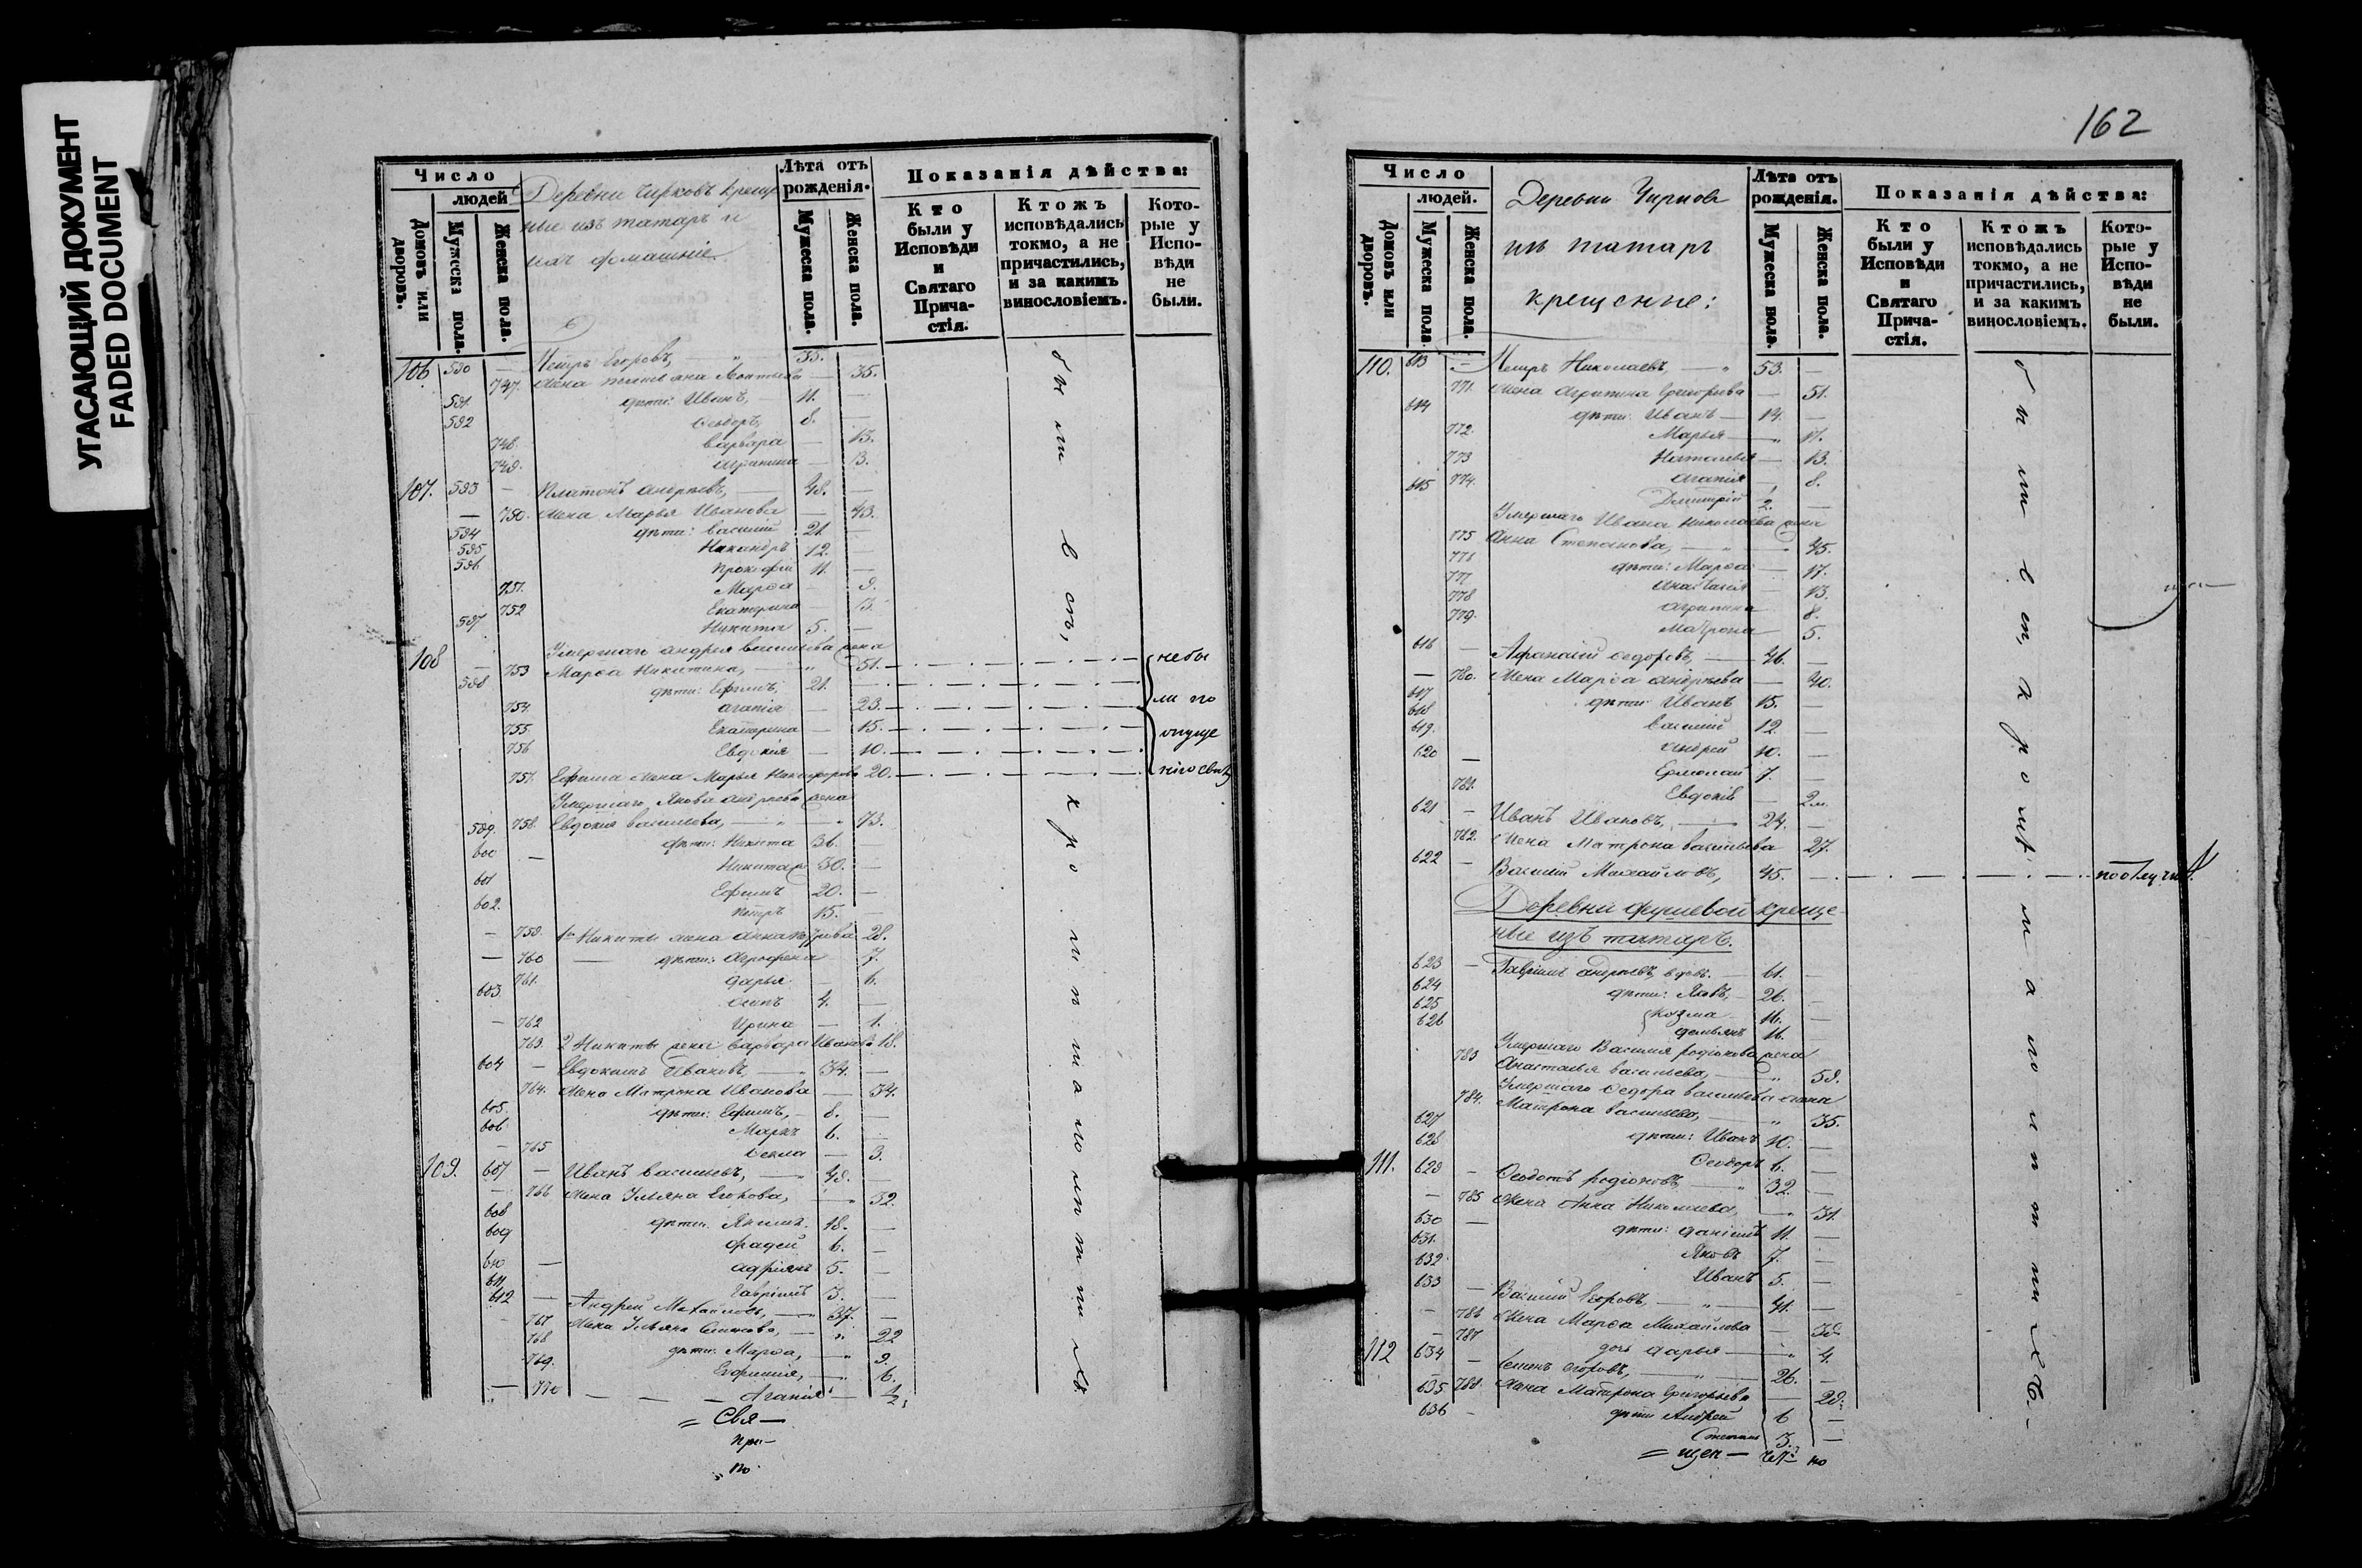 УГАСАЮЩИЙ ДОКУМЕНТ
FADED DOCUMENT
Число
людей
Домовъ или дворовъ.
Мужеска пола.
Женска пола.
Деревни Чирковъ креще
ные изъ татаръ и
ихъ домашніе
Лѣта отъ рожденія.
Мужеска пола.
Женска пола.
Показанія дѣйства:
Кто были у Исповѣди и Святаго Причастія.
Ктожъ исповѣдались токмо, а не причастились, и за какимъ винословіемъ.
Которые у Исповѣди не были.
106. 590 — Петръ Егоровъ, — 35. —
747. Жена Татьяна Леонтьева — 35.
591. дѣти: Иванъ, — 11. —
592 Ѳеодоръ, 8. —
748. Варвара — 13.
749. Агрипина — 3.
107. 593 — Платонъ Андреевъ, — 48. —
— 750. Жена Марья Иванова — 43.
594 дѣти: Василій 21. —
595 Никандръ 12. —
596 Прокофій 11. —
751. Марѳа — 9.
752 Екатерина — 3.
597 Никита 5. —
108 Умершаго Андрея Васильева жена
— 753 Марѳа Никитина, — 51. —
598 дѣти: Ефимъ, 21. —
754. Агапія — 23. —
755. Екатерина — 15. —
756 Евдокія — 10. —
не бы
ли по
опуще
нію свое
757. Ефима жена Марья Никифорова 20. —
Умершаго Якова Андреева жена
758. Евдокія Васильева, — 73.
599. дѣти: Никита 36. —
600 — Никитаж 30. —
601 Ефимъ 20. —
602. Петръ 15. —
— 759. 1го Никиты жена Анна 28.
— 760 — дѣти: Агрофена 7.
761. Дарья — 6.
603. Осипъ 4. —
— 762 Ирина — 1.
763. 2 Никиты жена Варвара Иванова 18.
604 — Евдокимъ Ивановъ, — 34. —
764. Жена Матрона Иванова — 34.
605. дѣти: Ефимъ, — 8. —
606 Маркъ 6. —
— 765 Ѳекла — 3.
109. 607 — Иванъ Васильевъ, — 48. —
— 766 Жена Ульяна Егорова, — 52.
608 дѣти: Якимъ 18. —
609 Фадей 6. —
610 — Адріянъ 5. —
611 Гавріилъ 3. —
612 — Андрей Михайловъ, — 37. —
— 767 Жена Ульяна — 22
768 дѣти: Марѳа, — 9.
769. Евфимія, — 6.
— 770 — Агапія — ½
= Свя —
при —
„ по
162
Число
людей.
Домовъ или дворовъ.
Мужеска пола.
Женска пола.
Деревни Чирковъ
изъ татаръ
крещеные:
Лѣта отъ рожденія.
Мужеска пола.
Женска пола.
Показанія дѣйства:
Кто были у Исповѣди и Святаго Причастія.
Ктожъ исповѣдались токмо, а не причастились, и за какимъ винословіемъ.
Которые у Исповѣди не были.
110. 613 — Петръ Николаевъ, — 53. —
771. Жена Агрипина Григорьева — 51.
614 дѣти: Иванъ — 14. —
772. Марья — 17.
773 Наталья — 13.
774. Агапія — 8.
615 Дмитрій 2. —
Умершаго Ивана Николаева жена
775 Анна Степанова, — 45.
776 дѣти: Марѳа — 17.
777 Анастасія — 13.
778 Агрипина — 8.
779. Матрона — 5.
616 — Афанасій Ѳедоровъ, — 46. —
— 780. Жена Марѳа Андреева — 40.
617 дѣти: Иванъ 15. —
618 Василій 12 —
619. Андрей 10. —
620 — Ермолай 7. —
781. Евдокія — 2м.
621 — Иванъ Ивановъ, — 24. —
782. Жена Матрона Васильева 27.
622 — Василій Михайловъ, 45. — по отлучкѣ.
Деревни креще
ные изъ татаръ.
623 — Гавріилъ Андреевъ, вдовъ. — 61. —
624 дѣти: Яковъ, — 26. —
625 Козма — 16. —
626 Демьянъ 16. —
Умершаго Василія Родіонова жена
783 Анастасія Васильева, — 58.
Умершаго Ѳедора Васильева жена
784. Матрона Васильева, — 35.
627 дѣти: Иванъ 10. —
628 Ѳеодоръ 6. —
111. 629 — Ѳеодотъ Родіоновъ, — 32. —
— 785 Жена Анна Николаева, — 31.
630 — дѣти: Даніилъ 11. —
631. Яковъ 7. —
632. Иванъ 5. —
633 — Василій Егоровъ, — 41. —
— 786 Жена Марѳа Михайлова — 38.
— 787 дочь Дарья — 4.
112 634 — Семенъ Егоровъ, — 26. —
788. Жена Матрона Григорьева — 28.
635 дѣти Андрей 6 —
636 — Степанъ 3. —
= щен — чет. но